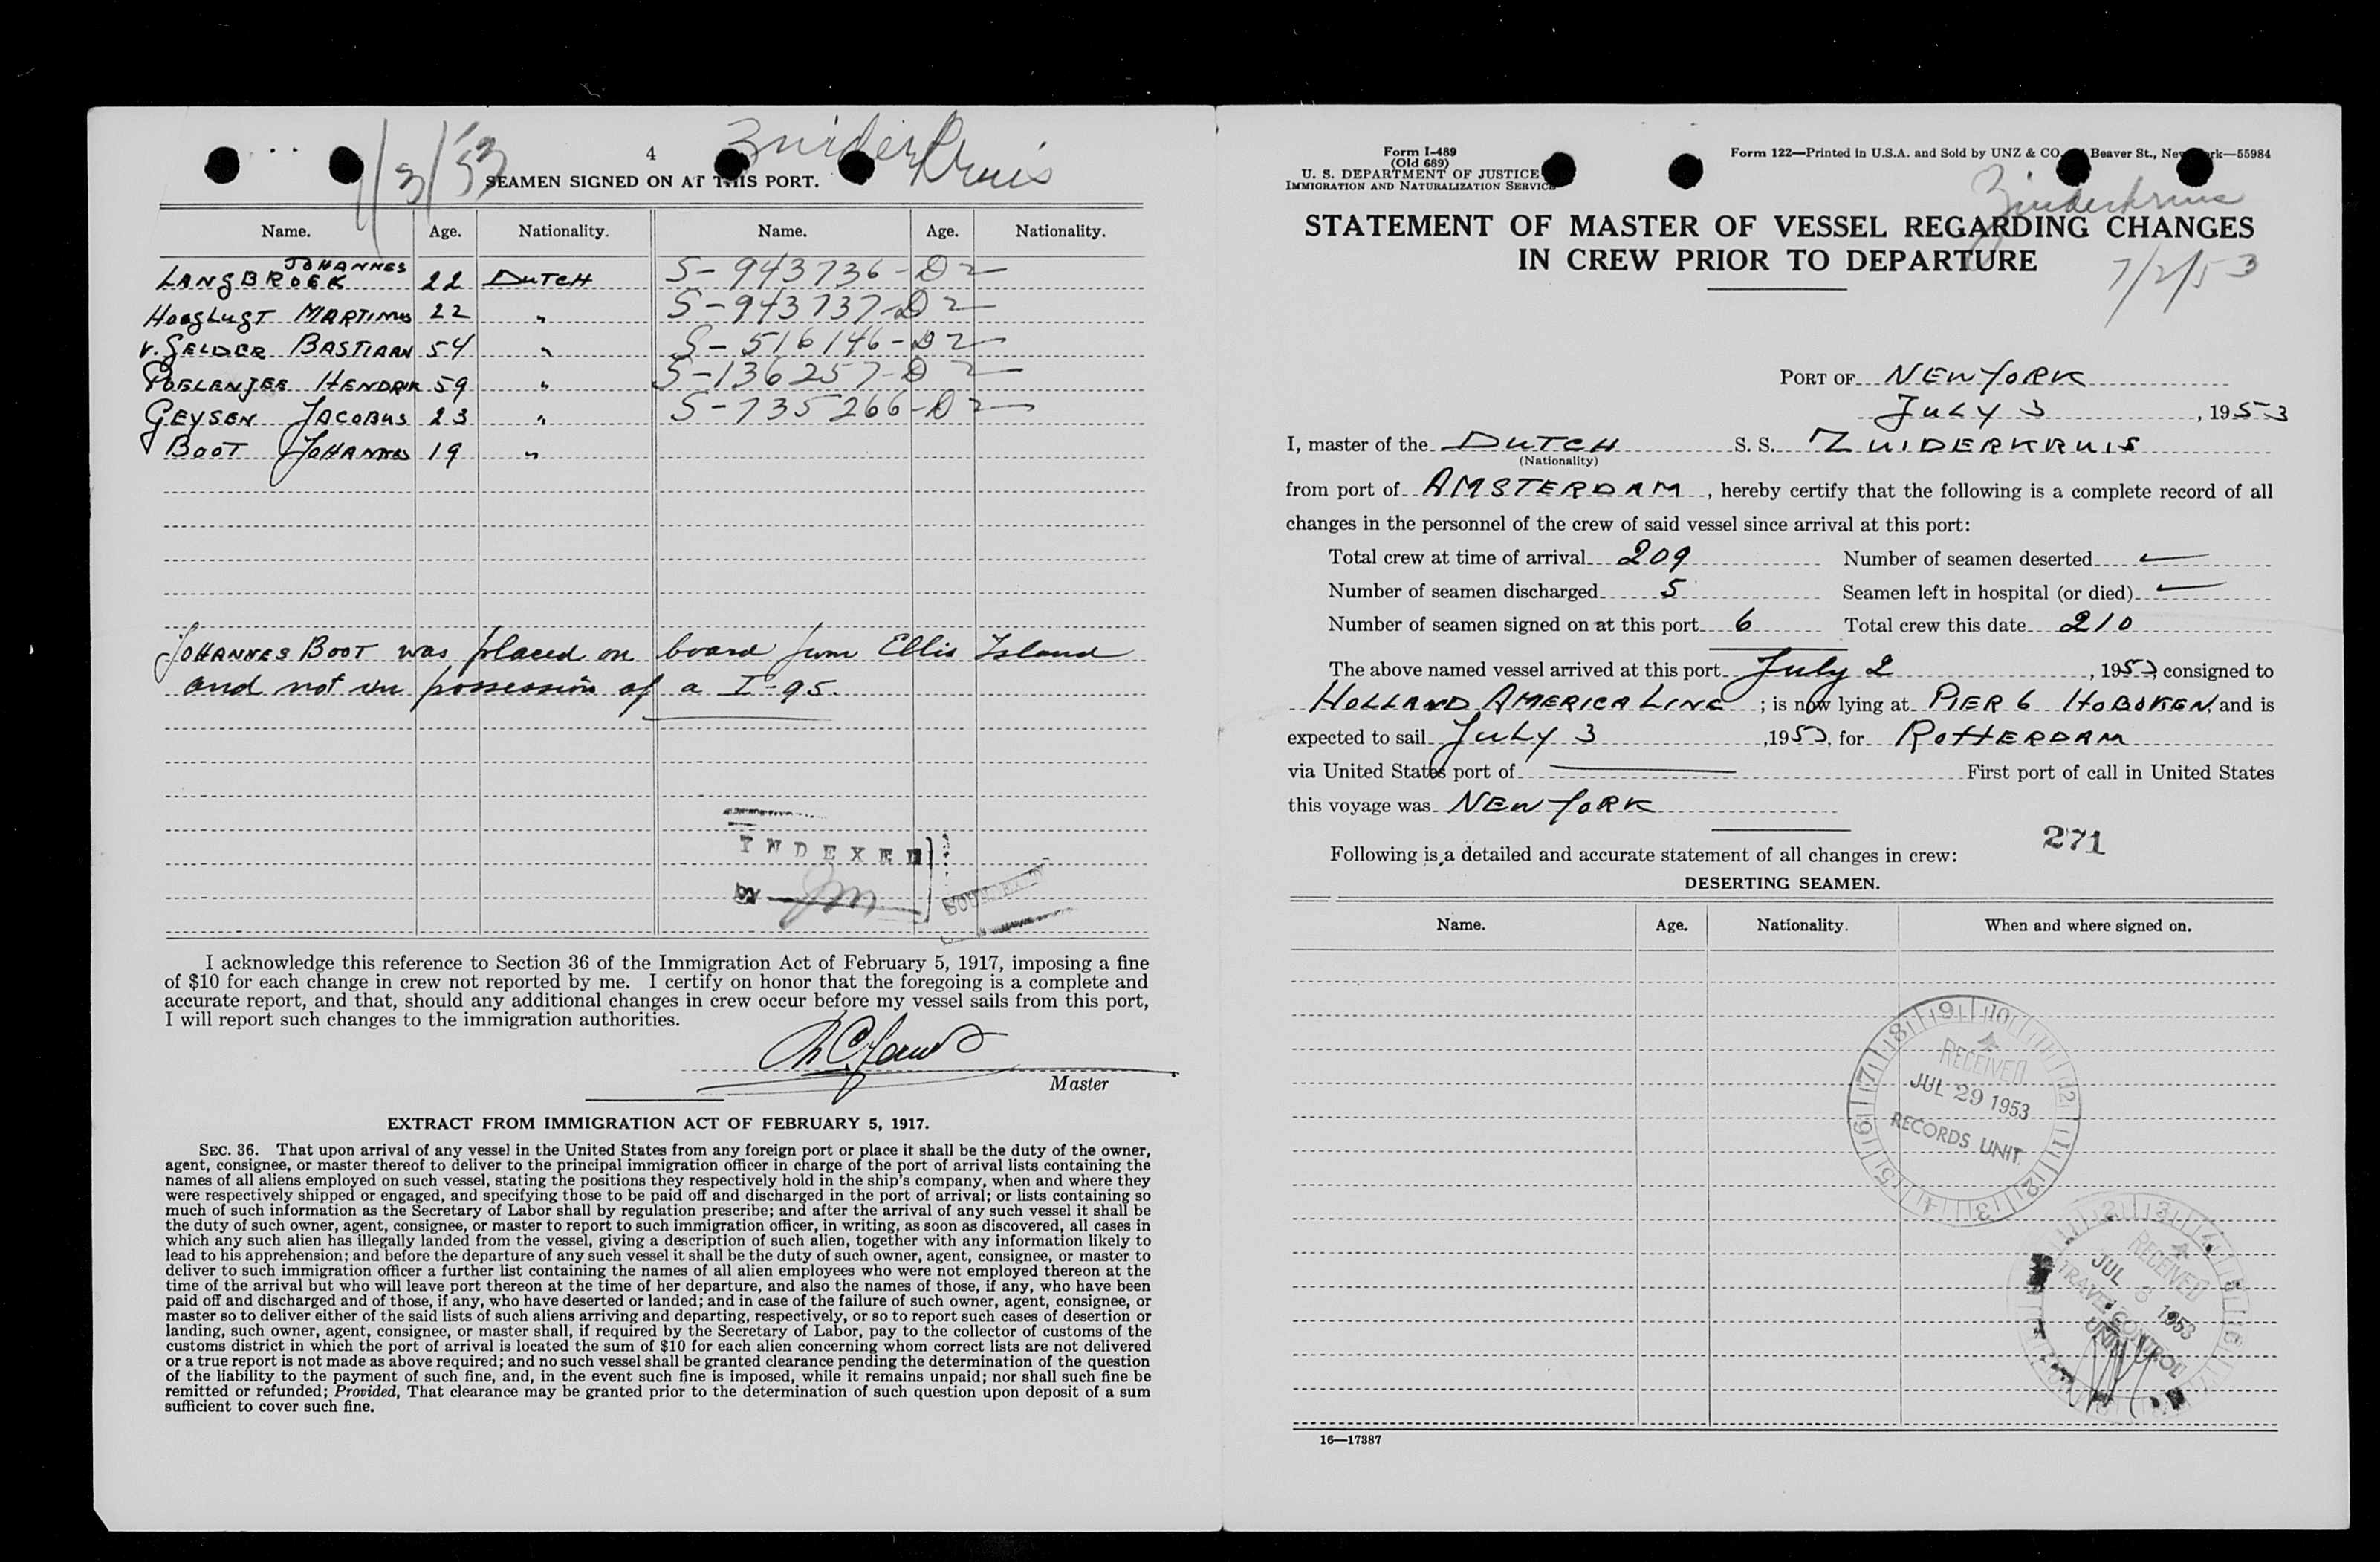 7/3/53
4
Zuiderkruis
SEAMEN SIGNED ON AT THIS PORT.
Name. Age. Nationality. Name. Age. Nationality.
JOHANNES
LANGBROEK 22 DUTCH S-943736-D2
HOOGLUGT MARTINUS 22 " S-943737-D2
V. GELDER BASTIAAN 54 " S-516146-D2
POELANJEE HENDRIK 59 " S-136257-D2
GEYSEN JACOBUS 23 " S-735266-D2
BOOT JOHANNES 19 "
JOHANNES BOOT was placed on board from Ellis Island
and not in possession of a I-95.
INDEXED
BY
I acknowledge this reference to Section 36 of the Immigration Act of February 5, 1917, imposing a fine
of $10 for each change in crew not reported by me. I certify on honor that the foregoing is a complete and
accurate report, and that, should any additional changes in crew occur before my vessel sails from this port,
I will report such changes to the immigration authorities.
Master
EXTRACT FROM IMMIGRATION ACT OF FEBRUARY 5, 1917.
SEC. 36. That upon arrival of any vessel in the United States from any foreign port or place it shall be the duty of the owner,
agent, consignee, or master thereof to deliver to the principal immigration officer in charge of the port of arrival lists containing the
names of all aliens employed on such vessel, stating the positions they respectively hold in the ship's company, when and where they
were respectively shipped or engaged, and specifying those to be paid off and discharged in the port of arrival; or lists containing so
much of such information as the Secretary of Labor shall by regulation prescribe; and after the arrival of any such vessel it shall be
the duty of such owner, agent, consignee, or master to report to such immigration officer, in writing, as soon as discovered, all cases in
which any such alien has illegally landed from the vessel, giving a description of such alien, together with any information likely to
lead to his apprehension; and before the departure of any such vessel it shall be the duty of such owner, agent, consignee, or master to
deliver to such immigration officer a further list containing the names of all alien employees who were not employed thereon at the
time of the arrival but who will leave port thereon at the time of her departure, and also the names of those, if any, who have been
paid off and discharged and of those, if any, who have deserted or landed; and in case of the failure of such owner, agent, consignee, or
master so to deliver either of the said lists of such aliens arriving and departing, respectively, or so to report such cases of desertion or
landing, such owner, agent, consignee, or master shall, if required by the Secretary of Labor, pay to the collector of customs of the
customs district in which the port of arrival is located the sum of $10 for each alien concerning whom correct lists are not delivered
or a true report is not made as above required; and no such vessel shall be granted clearance pending the determination of the question
of the liability to the payment of such fine, and, in the event such fine is imposed, while it remains unpaid; nor shall such fine be
remitted or refunded; Provided, That clearance may be granted prior to the determination of such question upon deposit of a sum
sufficient to cover such fine.
Form I-489
(Old 689)
U. S. DEPARTMENT OF JUSTICE
IMMIGRATION AND NATURALIZATION SERVICE
Form 122—Printed in U.S.A. and Sold by UNZ & CO. Beaver St., New York—55984
Zuiderkruis
STATEMENT OF MASTER OF VESSEL REGARDING CHANGES
IN CREW PRIOR TO DEPARTURE
7/2/53
PORT OF NEW YORK
JULY 3, 1953
I, master of the DUTCH S. S. ZUIDERKRUIS
(Nationality)
from port of AMSTERDAM, hereby certify that the following is a complete record of all
changes in the personnel of the crew of said vessel since arrival at this port:
Total crew at time of arrival 209 Number of seamen deserted —
Number of seamen discharged 5 Seamen left in hospital (or died) —
Number of seamen signed on at this port 6 Total crew this date 210
The above named vessel arrived at this port July 2, 1953, consigned to
HOLLAND AMERICA LINE; is now lying at PIER 6 HOBOKEN, and is
expected to sail JULY 3, 1953, for ROTTERDAM
via United States port of — First port of call in United States
this voyage was NEW YORK
271
Following is a detailed and accurate statement of all changes in crew:
DESERTING SEAMEN.
Name. Age. Nationality. When and where signed on.
RECEIVED
JUL 29 1953
RECORDS UNIT
RECEIVED
JUL 6 1953
TRAVEL CONTROL
UNIT
16—17387